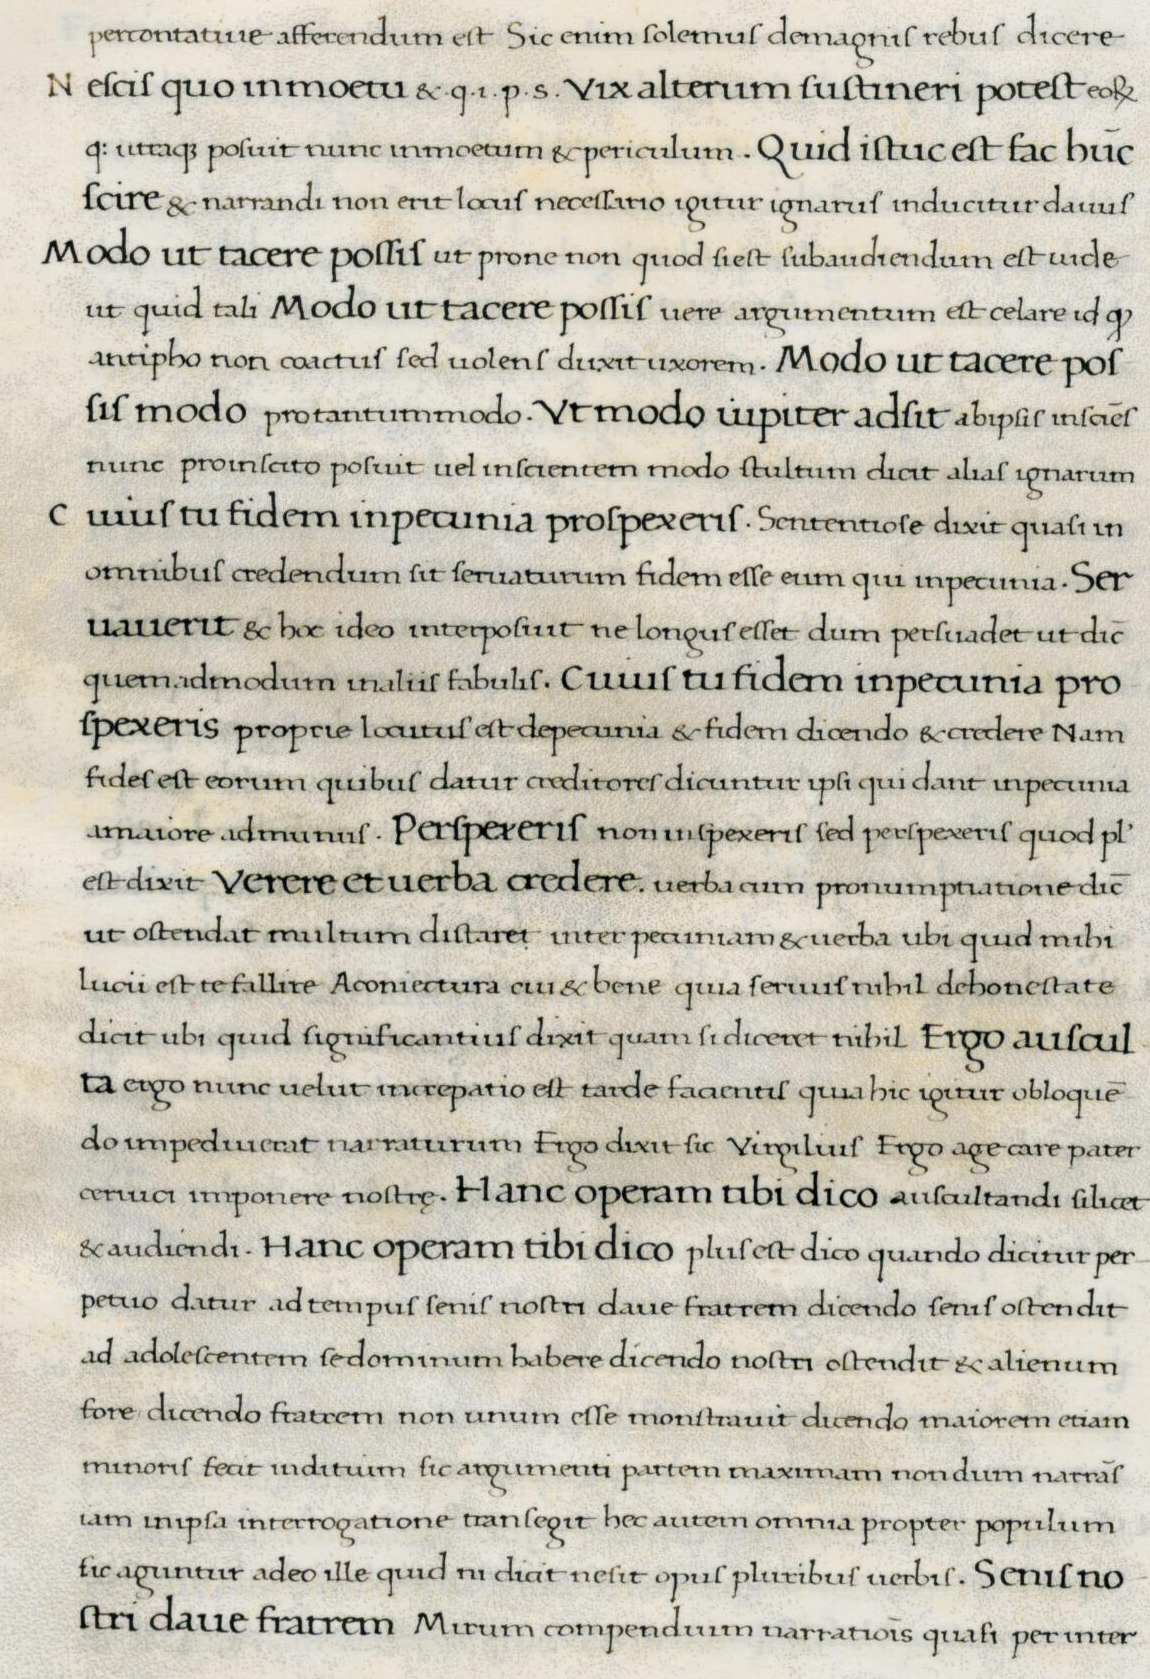 percontatiue afferendum est Sic enim solemus demagnis rebus dicere
Nescis quo inmoetu &. q. i. p. s. Vix alterum sustineri potest eoꝝ
q: utraqꝫ posuit nunc inmoetum & periculum. Quid istuc est fac hūc
scire & narrandi non erit locus necessario igitur ignarus inducitur dauus
Modo ut tacere possis ut prone non quod siest subaudiendum est uide
ut quid tali Modo ut tacere possis uere argumentum est celare id ꝙ
antipho non coactus sed uolens duxit uxorem. Modo ut tacere pos
sis modo protantummodo. Vt modo iupiter adsit abipsis insciēs
nunc proinscito posuit uel inscientem modo stultum dicit alias ignarum
Cuius tu fidem inpecunia prospexeris. Sententiose dixit quasi in
omnibus credendum sit seruaturum fidem esse eum qui inpecunia. Ser
uauerit & hoc ideo interposuit ne longus esset dum persuadet ut dic̄
quemadmodum inaliis fabulis. Cuius tu fidem inpecunia pro
spexeris proprie locutus est depecunia & fidem dicendo & credere Nam
fides est eorum quibus datur creditores dicuntur ipsi qui dant inpecunia
amaiore adminus. Perspexeris non inspexeris sed perspexeris quod pl’
est dixit Verere et uerba credere. uerba cum pronumptiatione dic̄
ut ostendat multum distaret inter pecuniam & uerba ubi quid mihi
lucii est te fallire Aconiectura cui & bene quia seruus nihil dehonestate
dicit ubi quid significantius dixit quam si diceret nihil Ergo auscul
ta ergo nunc uelut increpatio est tarde facientis quia hic igitur obloquē
do impediuerat narraturum Ergo dixit sic Virgilius Ergo age care pater
ceruici imponere nostrę. Hanc operam tibi dico auscultandi silicet
& audiendi. Hanc operam tibi dico plus est dico quando dicitur per
petuo datur ad tempus senis nostri daue fratrem dicendo senis ostendit
ad adolescentem se dominum habere dicendo nostri ostendit & alienum
fore dicendo fratrem non unum esse monstrauit dicendo maiorem etiam
minoris fecit indituim sic argumenti partem maximam nondum narrās
iam inipsa interrogatione transegit hec autem omnia propter populum
sic aguntur adeo ille quid ni dicit nesit opus pluribus uerbis. Senis no
stri daue fratrem Mirum compendium narratiōis quasi per inter